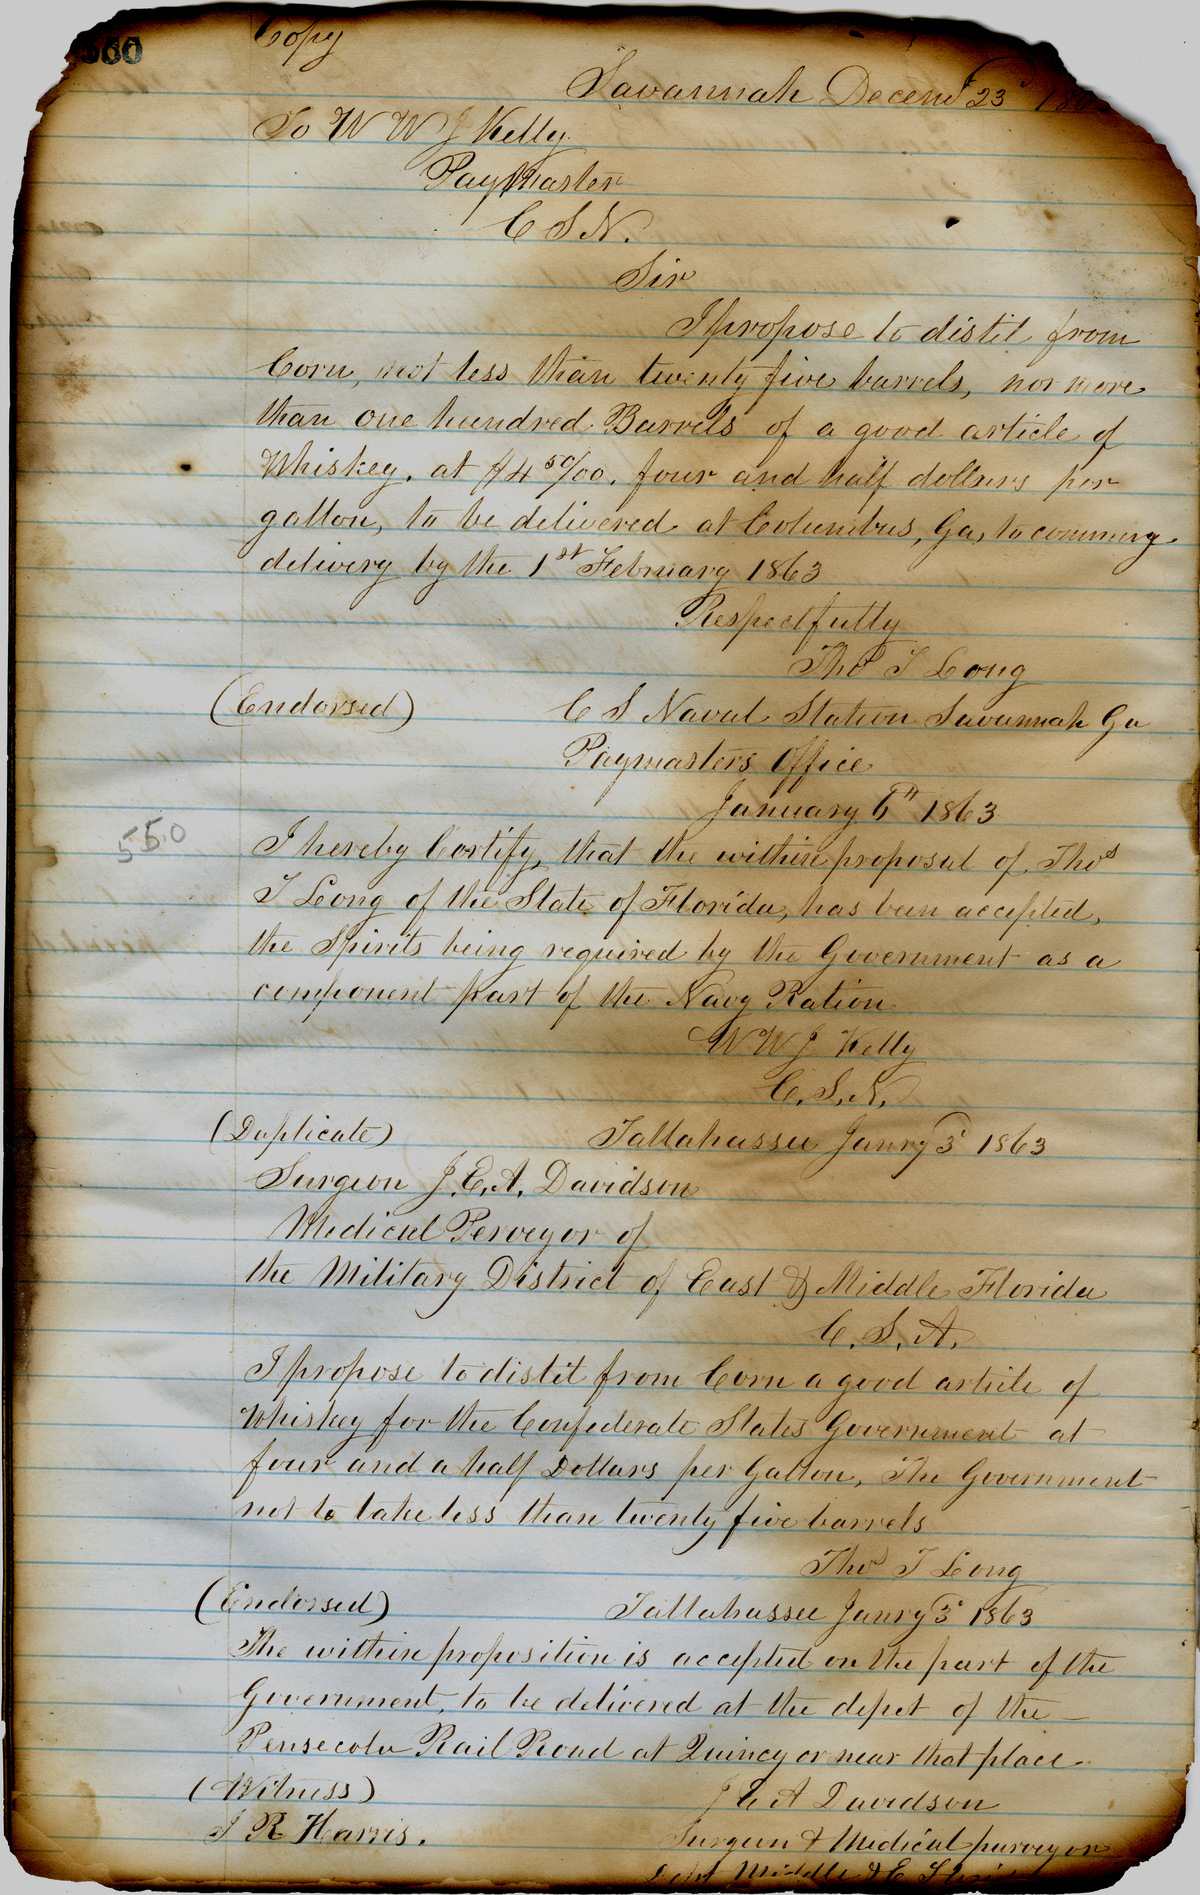 560
Copy
Savannah Decemr 23d 186
To W W J Kelly
PayMaster
C S N.
Sir
I propose to distil from
Corn, not less than twenty five barrels, nor more
than one hundred Barrels of a good article of
Whiskey, at $4 50/00, four and half dollars per
gallon, to be delivered at Columbus, Ga, to commence
delivery by the 1st February 1863
Respectfully
Thos T Long
(Endorsed)
C S Naval Station Savannah Ga
Paymasters Office
January 6th 1863
550
I hereby Certify, that the within proposal of Thos
T Long of the State of Florida, has been accepted,
the Spirits being required by the Government as a
component part of the Navy Ration
W W J Kelly
C. S. N.
(Duplicate)
Tallahassee Janry 3d 1863
Surgeon J. E. A. Davidson
Medical Perveyor of
the Military District of East & Middle Florida
C. S. A.
I propose to distil from Corn a good article of
Whiskey for the Confederate States Government at
four and a half Dollars per Gallon, The Government
not to take less than twenty five barrels
Thos T Long
(Endorsed)
Tallahassee Janry 3d 1863
The within proposition is accepted on the part of the
Government, to be delivered at the depot of the
Pensecola Rail Road at Quincy or near that place
(Witness)
J E A Davidson
J R Harris.
Surgeon & Medical purveyor
Dept Middle & E Florida